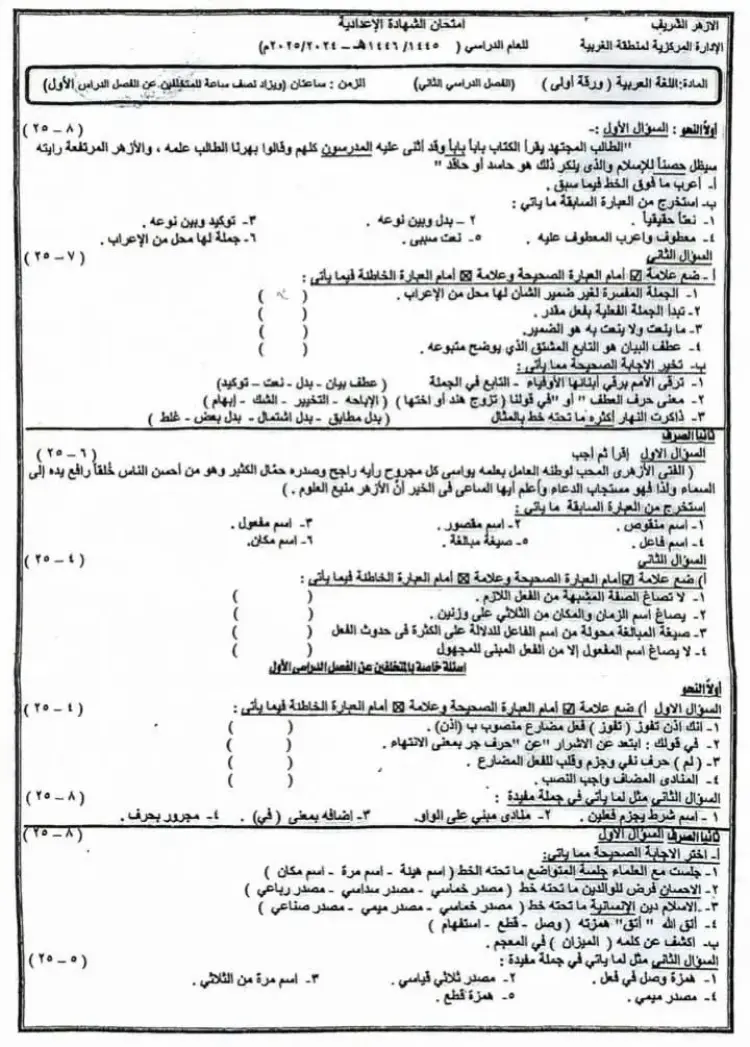 الازهر الشريف
امتحان الشهادة الإعدادية
الإدارة المركزية لمنطقة الغربية
للعام الدراسي ( ١٤٤٥/ ١٤٤٦هـ – ٢٠٢٤/ ٢٠٢٥م)
المادة:اللغة العربية ( ورقة أولى ) (الفصل الدراسي الثاني) الزمن : ساعتان (ويزاد نصف ساعة للمتخلفين عن الفصل الدراس الأول)
أولاً النحو : السؤال الأول :- ( ٨ – ٢٥ )
"الطالب المجتهد يقرأ الكتاب باباً باباً وقد أثنى عليه المدرسون كلهم وقالوا بهرنا الطالب علمه ، والأزهر المرتفعة رايته
سيظل حصناً للإسلام والذى ينكر ذلك هو حاسد أو حاقد "
أ- أعرب ما فوق الخط فيما سبق .
ب- استخرج من العبارة السابقة ما يأتي :
١- نعتاً حقيقياً . ٢ – بدل وبين نوعه . ٣- توكيد وبين نوعه .
٤- معطوف واعرب المعطوف عليه . ٥- نعت سببى . ٦- جملة لها محل من الإعراب .
السؤال الثاني ( ٧ – ٢٥ )
أ – ضع علامة ☑ أمام العبارة الصحيحة وعلامة ☒ أمام العبارة الخاطئة فيما يأتى :
١- الجملة المفسرة لغير ضمير الشأن لها محل من الإعراب . ( )
٢- تبدأ الجملة الفعلية بفعل مقدر . ( )
٣- ما ينعت ولا ينعت به هو الضمير. ( )
٤- عطف البيان هو التابع المشتق الذي يوضح متبوعه . ( )
ب- تخير الاجابة الصحيحة مما يأتى :
١- ترقى الأمم برقي أبنائها الأوفياء - التابع في الجملة ( عطف بيان - بدل - نعت – توكيد)
٢- معنى حرف العطف " أو "في قولنا ( تزوج هند أو اختها ) ( الإباحه - التخيير - الشك - إبهام )
٣- ذاكرت النهار أكثره ما تحته خط بالمثال ( بدل مطابق - بدل اشتمال - بدل بعض - غلط )
ثانيا الصرف
السؤال الاول إقرأ ثم أجب ( ٦ – ٢٥ )
( الفتى الأزهرى المحب لوطنه العامل بعلمه يواسى كل مجروح رأيه راجح وصدره حمّال الكثير وهو من أحسن الناس خُلقاً رافع يده إلى
السماء ولذا فهو مستجاب الدعاء وأعلم أيها الساعى فى الخير أنَّ الأزهر منبع العلوم . )
استخرج من العبارة السابقة ما يأتي :
١- اسم منقوص . ٢- اسم مقصور . ٣- اسم مفعول .
٤- اسم فاعل . ٥- صيغة مبالغة . ٦- اسم مكان.
السؤال الثاني ( ٤ – ٢٥ )
أ) ضع علامة ☑ أمام العبارة الصحيحة وعلامة ☒ أمام العبارة الخاطئة فيما يأتى :
١- لا تصاغ الصفة المشبهة من الفعل اللازم . ( )
٢- يصاغ اسم الزمان والمكان من الثلاثي على وزنين . ( )
٣- صيغة المبالغة محولة من اسم الفاعل للدلالة على الكثرة فى حدوث الفعل ( )
٤- لا يصاغ اسم المفعول إلا من الفعل المبنى للمجهول ( )
اسئلة خاصة بالمتخلفين عن الفصل الدراسى الأول
أولاً النحو
السؤال الاول أ) ضع علامة ☑ أمام العبارة الصحيحة وعلامة ☒ أمام العبارة الخاطئة فيما يأتى : ( ٤ – ٢٥ )
١- انك اذن تفوز ( تفوز ) فعل مضارع منصوب ب (اذن) . ( )
٢- في قولك : ابتعد عن الاشرار "عن "حرف جر بمعنى الانتهاء . ( )
٣- ( لم ) حرف نفي وجزم وقلب للفعل المضارع . ( )
٤- المنادى المضاف واجب النصب . ( )
السؤال الثاني مثل لما يأتي في جملة مفيدة : ( ٨ – ٢٥ )
١ – اسم شرط يجزم فعلين . ٢- منادى مبني على الواو. ٣- اضافه بمعنى ( في) . ٤- مجرور بحرف .
ثانيا الصرف السؤال الأول ( ٨ – ٢٥ )
أ- اختر الاجابة الصحيحة مما يأتى:
١- جلست مع العلماء جلسة المتواضع ما تحته الخط ( اسم هيئة - اسم مرة - اسم مكان )
٢- الاحسان فرض للوالدين ما تحته خط ( مصدر خماسي - مصدر سداسي - مصدر رباعي )
٣- .الاسلام دين الإنسانية ما تحته خط ( مصدر خماسي - مصدر ميمي - مصدر صناعي )
٤- أتق الله " أتق" همزته ( وصل - قطع - استفهام )
ب- اكشف عن كلمه ( الميزان ) في المعجم .
السؤال الثاني مثل لما يأتي في جملة مفيدة : ( ٥ – ٢٥ )
١- همزة وصل في فعل . ٢- مصدر ثلاثي قياسي . ٣- اسم مرة من الثلاثي .
٤- مصدر ميمي . ٥- همزة قطع .